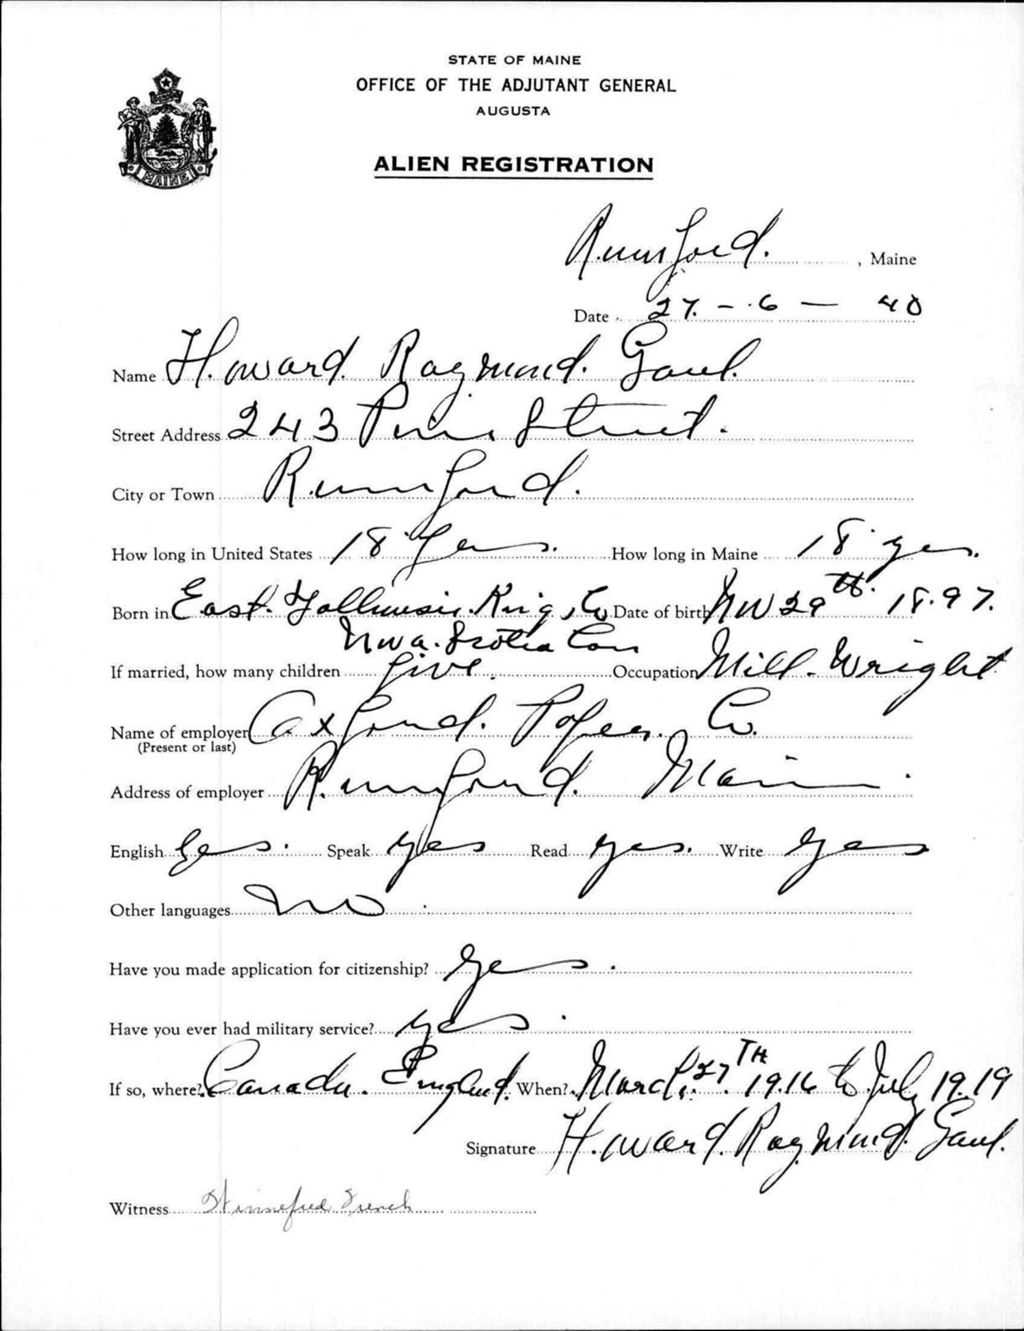 STATE OF MAINE
OFFICE OF THE ADJUTANT GENERAL
AUGUSTA
ALIEN REGISTRATION
MAINE
Rumford. , Maine
Date 27. - 6 - 40
Name Howard. Raymond. Gaul.
Street Address 243 Pine Street.
City or Town Rumford.
How long in United States 18 Yers. How long in Maine 18 yes.
Born in East. King, Co Date of birth Nov 29th. 18.97.
Nova. Scotia Can
If married, how many children five. Occupation Mill. Wright
Name of employer Oxford. Paper. Co.
(Present or last)
Address of employer Rumford. Maine.
English Yes. Speak yes Read yes. Write yes
Other languages No.
Have you made application for citizenship? Yes.
Have you ever had military service? yes.
If so, where? Canada. England. When? March. 27TH 1916 to July 19.19
Signature Howard. Raymond. Gaul.
Witness Winnefred French